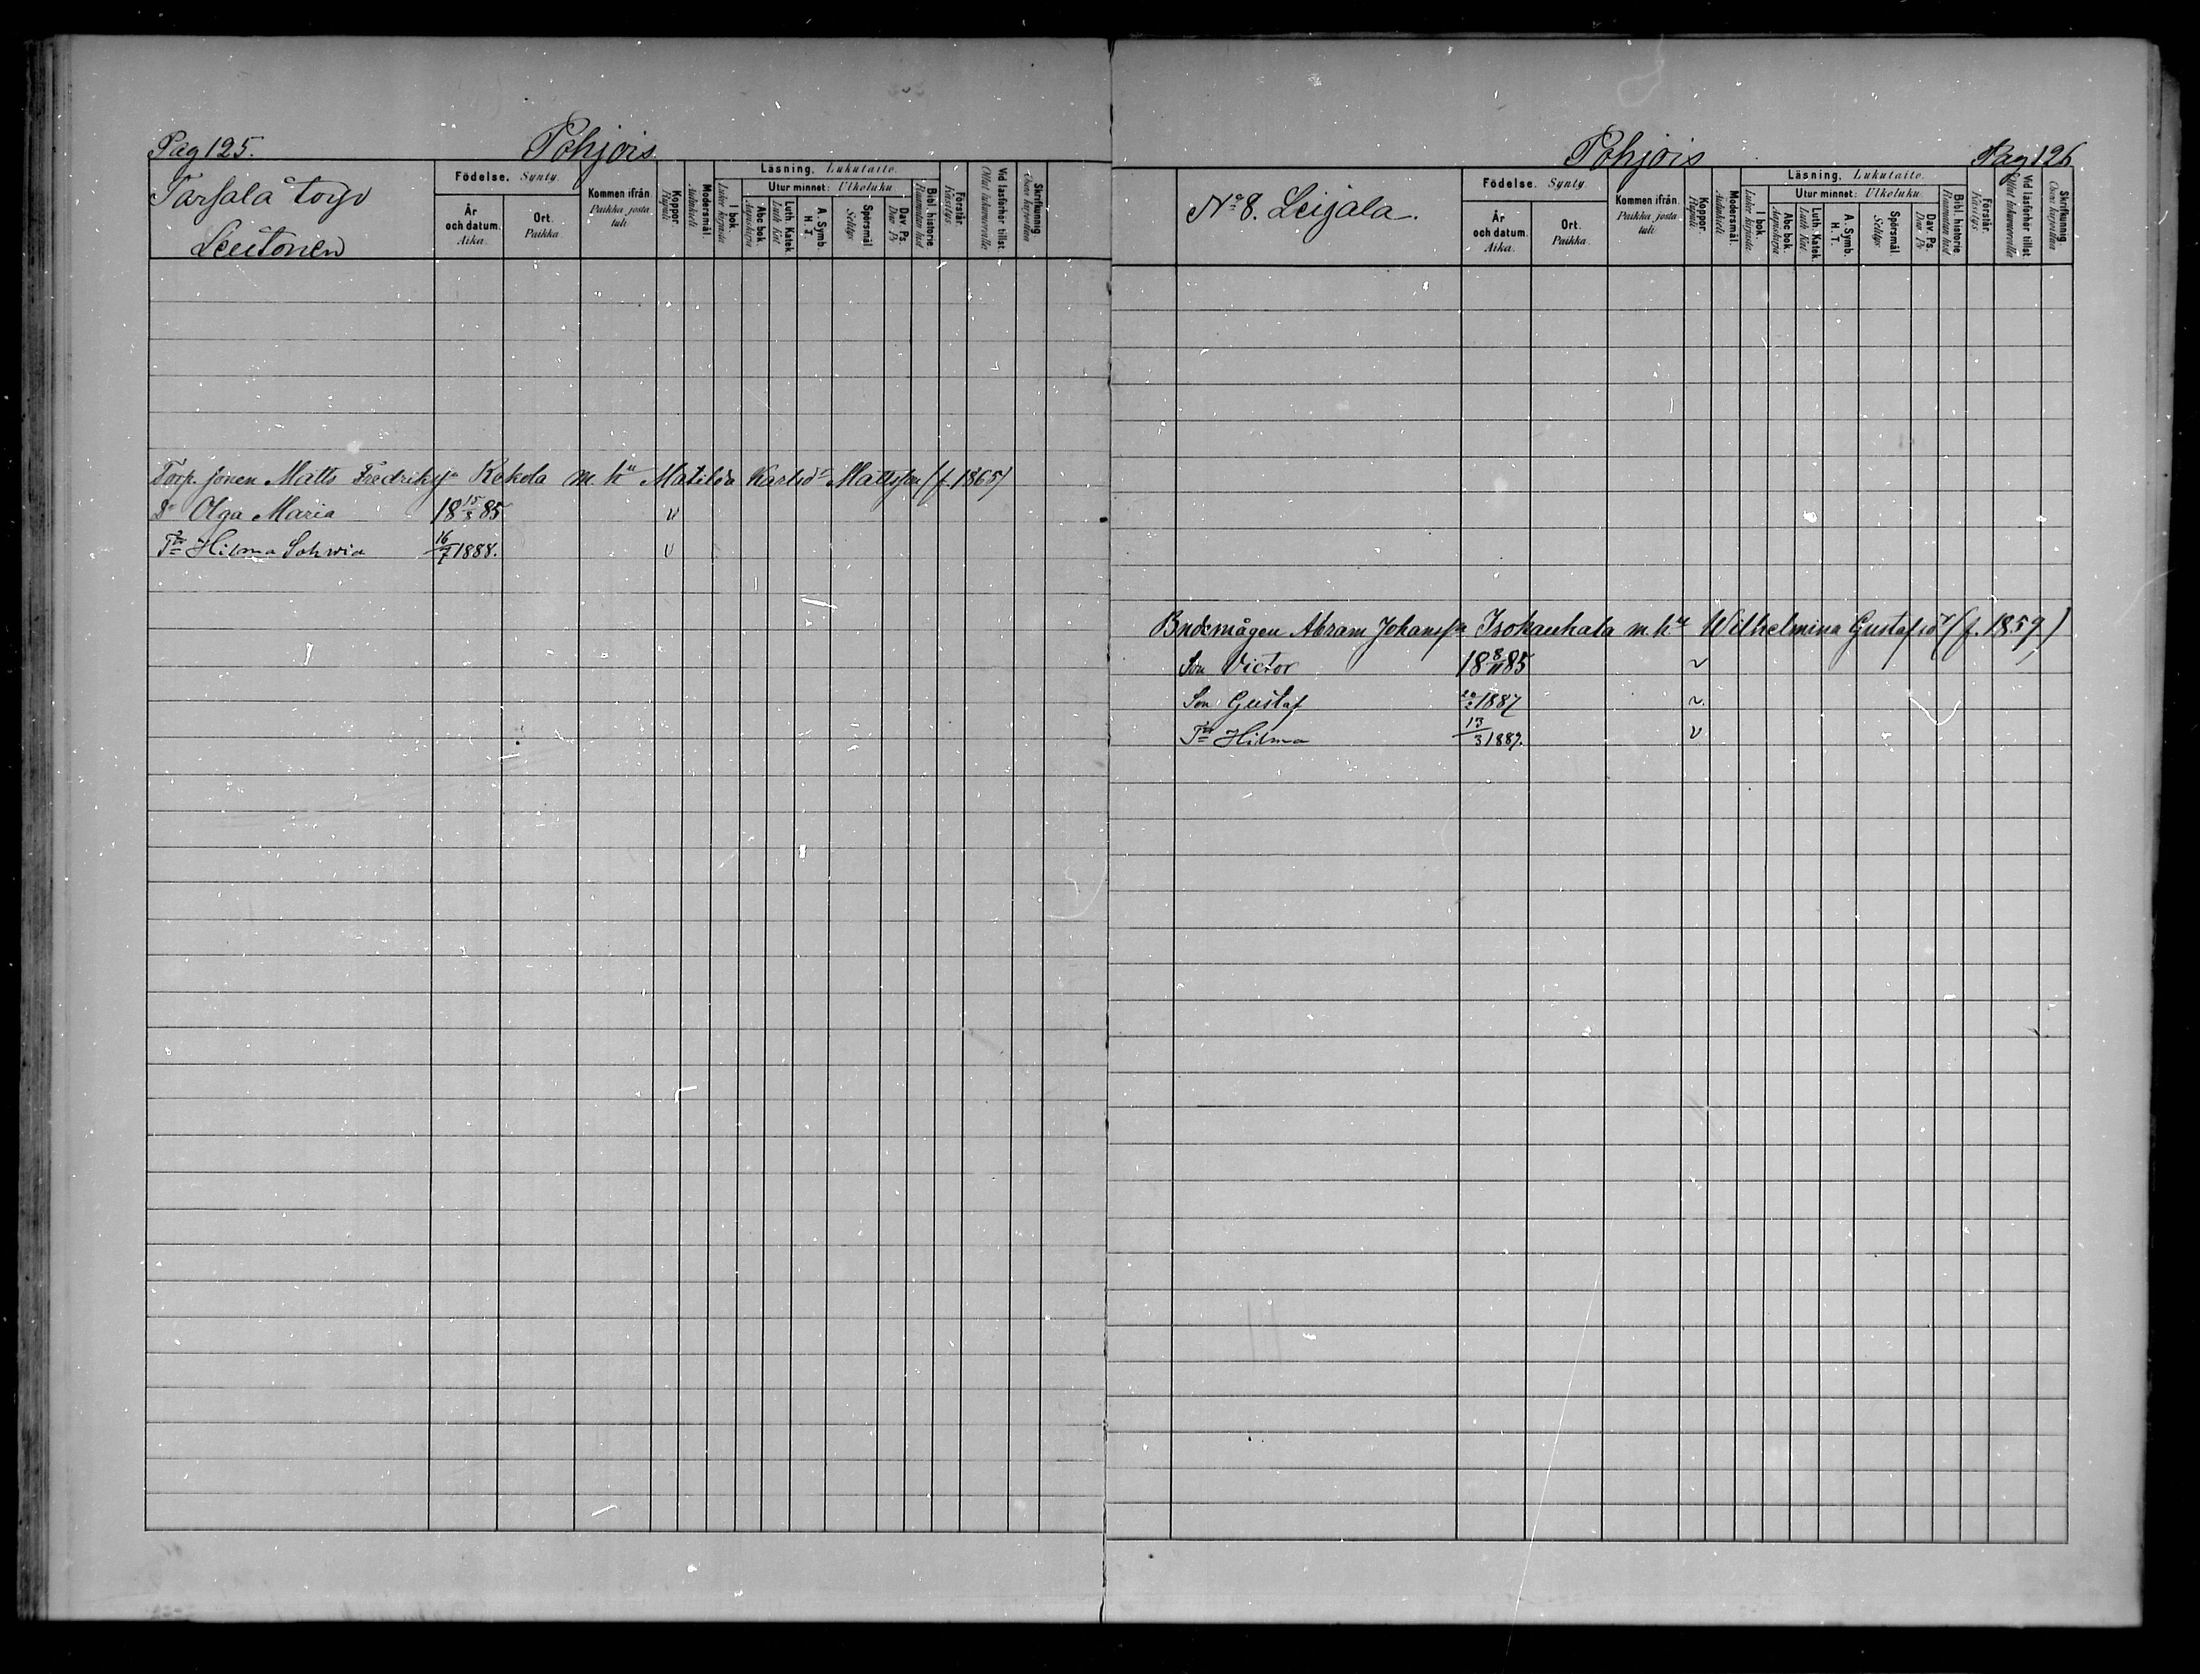 Pag 125. Pohjois
Tarsala torp
Leutonen
Födelse. Synty.
År och datum. Aika.
Ort. Paikka.
Kommen ifrån. Paikka josta tuli.
Koppor. Rupuli
Modersmål. Äidinkieli
Läsning. Lukutaito.
Utur minnet: Ulkoluku.
I bok. Lukee kirjasta
Abc bok. Aapiskirja
Luth. Katek. Luth. Kat
A. Symb. H. T.
Spörsmål. Selitys
Dav. Ps. Dav. Ps
Bibl. historie.
Förstår. Käsitys.
Vid läsförhör tillst. Ollut lukuvuorolla
Skrifkunnig. Osaa kirjoittaa
Torp. sonen Matts Fredrikss Kekola m. hu Matilda Karlsdr Mattsson (f. 1865)
Dr Olga Maria 18 15/3 85 v
Tr Hilma Sohvia 16/7 1888. v
Pohjois Pag 126
No 8. Leijala.
Födelse. Synty.
År och datum. Aika.
Ort. Paikka.
Kommen ifrån. Paikka josta tuli.
Koppor. Rupuli
Modersmål. Äidinkieli
Läsning. Lukutaito.
Utur minnet: Ulkoluku.
I bok. Lukee kirjasta
Abc bok. Aapiskirja
Luth. Katek. Luth. Kat.
A. Symb. H. T.
Spörsmål. Selitys
Dav. Ps. Dav. Ps
Bibl. historie
Förstår. Käsitys
Vid läsförhör tillst. Ollut lukuvuorolla
Skrifkunnig. Osaa kirjoittaa
Bndemågen Abram Johanss Isokauhala m. hu Wilhelmina Gustafsdr (f. 1859)
Son Victor 18 8/11 85 v
Son Gustaf 1887 v
Tr Hilma 13/3 1889. v